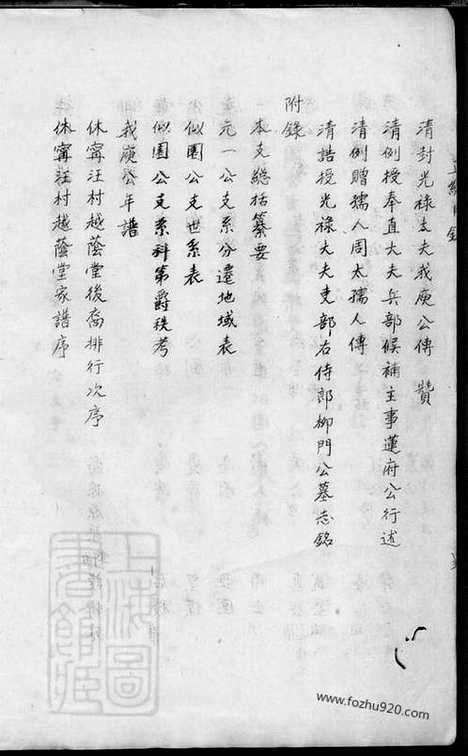 清封光祿大夫我庚公傳　贊
清例授奉直大夫兵部候補主事蓮府公行述
清例贈孺人周太孺人傳
清誥授光祿大夫吏部右侍郎柳門公墓志銘
附錄
本支總括纂要
元一公支系分遷地域表
似園公支世系表
似園公支系科第爵秩考
我庚公年譜
休寧汪村越蔭堂後裔排行次序
休寧汪村越蔭堂家譜序
上海圖書館藏
www.fozhu920.com